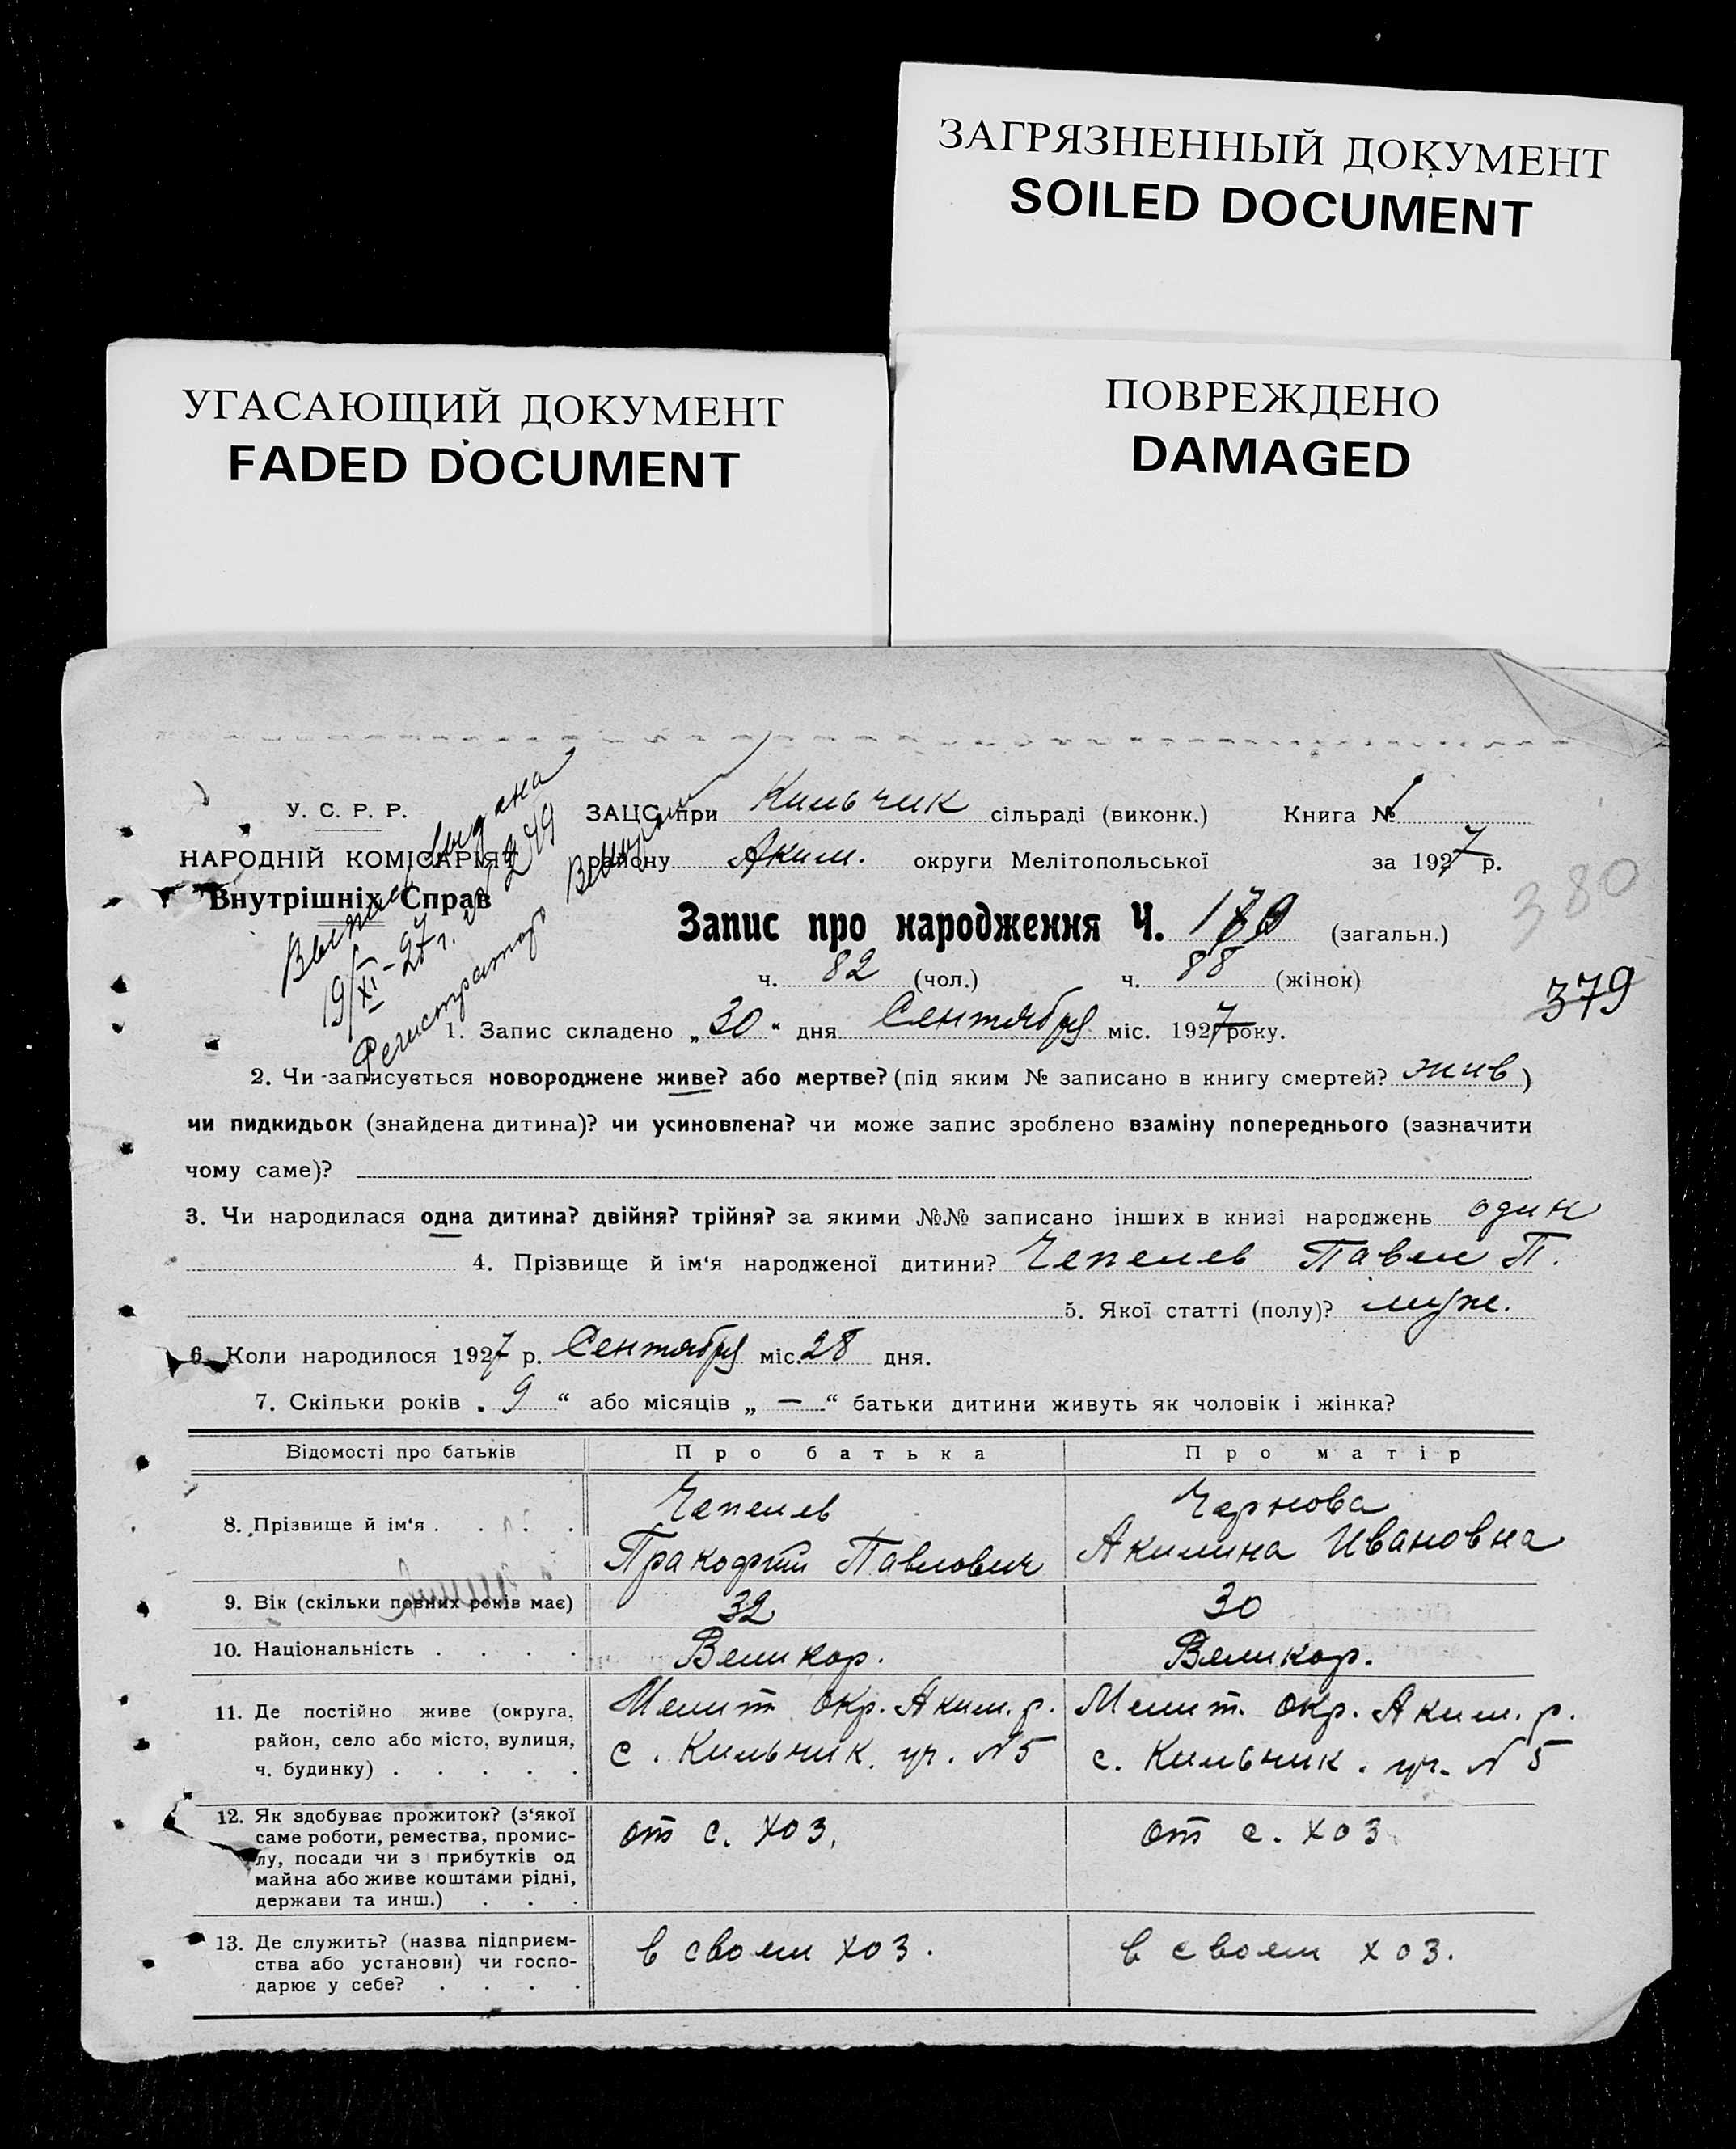 ЗАГРЯЗНЕННЫЙ ДОКУМЕНТ
SOILED DOCUMENT
УГАСАЮЩИЙ ДОКУМЕНТ
FADED DOCUMENT
ПОВРЕЖДЕНО
DAMAGED
У. С. Р. Р.
НАРОДНІЙ КОМІСАРІЯТ
Внутрішніх Справ
Выпись выдана
19/XI-27 г. № 279
Регистратор
ЗАЦС при Кильчик сільраді (виконк.) Книга №
району Аким. округи Мелітопольської за 1927 р.
380
Запис про народження Ч. 170 (загальн.)
ч. 82 (чол.) ч. 88 (жінок)
379
1. Запис складено „30“ дня Сентября міс. 1927 року.
2. Чи записується новороджене живе? або мертве? (під яким № записано в книгу смертей? жив)
чи пидкидьок (знайдена дитина)? чи усиновлена? чи може запис зроблено взаміну попереднього (зазначити
чому саме)?
3. Чи народилася одна дитина? двійня? трійня? за якими №№ записано інших в книзі народжень один
4. Прізвище й ім‘я народженої дитини? Чепелев Павел П.
5. Якої статті (полу)? муж.
6. Коли народилося 1927 р. Сентября міс. 28 дня.
7. Скільки років „ 9 “ або місяців „ — “ батьки дитини живуть як чоловік і жінка?
Відомості про батьків Про батька Про матір
8. Прізвище й ім‘я . . . . Чепелев Чернова
Пракофий Павлович Акилина Ивановна
9. Вік (скільки повних років має) 32 30
10. Національність . . . . Великор. Великор.
11. Де постійно живе (округа, Мелит. окр. Аким. р. Мелит. окр. Аким. р.
район, село або місто, вулиця, с. Кильчик. уч. N 5 с. Кильчик. уч. N 5
ч. будинку) . . . . .
12. Як здобуває прожиток? (з‘якої от с. хоз. от с. хоз.
саме роботи, ремества, промис-
лу, посади чи з прибутків од
майна або живе коштами рідні,
держави та инш.) . . .
13. Де служить? (назва підприєм- в своем хоз. в своем хоз.
ства або установи) чи госпо-
дарює у себе? . . . .